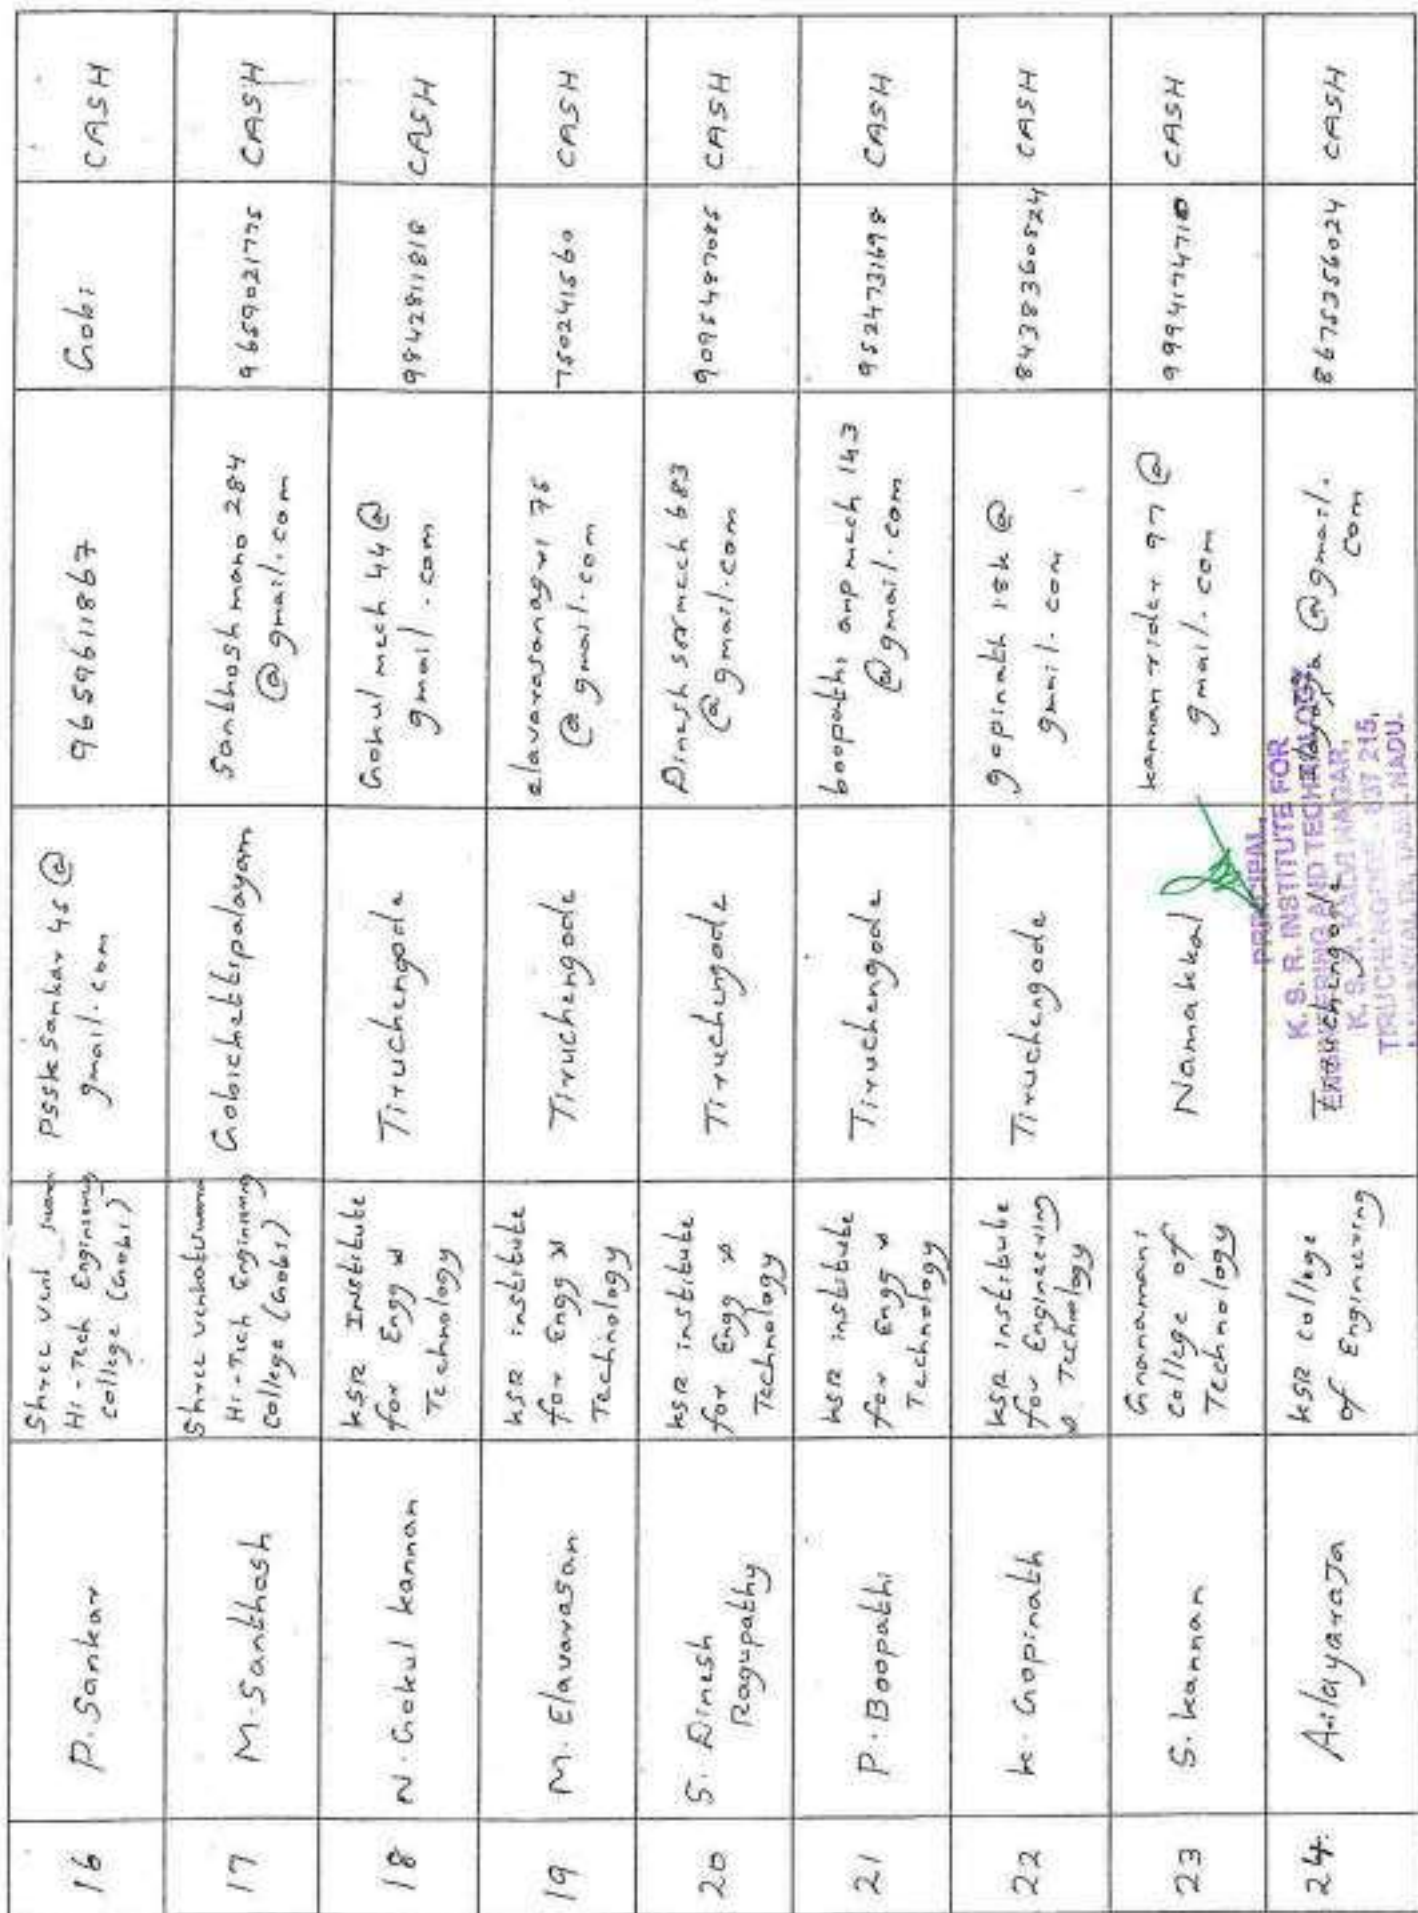 16
P. Sankar
Shree
Hi-Tech Engineering
college (Gobi)
Pssksankar 45 @
gmail.com
9659611867
Gobi
CASH
17
M. Santhosh
Shree
Hi-Tech Engineering
College (Gobi)
Gobichettipalayam
Santhosh mano 284
@gmail.com
9659021775
CASH
18
N. Gokul kannan
KSR Institute
for Engg &
Technology
Tiruchengode
Gokul mech 44 @
gmail.com
9842811818
CASH
19
M. Elavarasan
KSR institute
for Engg &
Technology
Tiruchengode
@gmail.com
750241560
CASH
20
S. Dinesh
Ragupathy
KSR institute
for Engg &
Technology
Tiruchengode
Dinesh mech 683
@gmail.com
9095487085
CASH
21
P. Boopathi
KSR institute
for Engg &
Technology
Tiruchengode
boopathi amp mech 143
@gmail.com
9524731698
CASH
22
K. Gopinath
KSR institute
for Engineering
& Technology
Tiruchengode
gopinath 18k @
gmail.com
8438360824
CASH
23
S. Kannan
Gnanamani
College of
Technology
Namakkal
kannan rider 97 @
gmail.com
9994174710
CASH
24.
A. ilayaraja
KSR college
of Engineering
Tiruchengode
@gmail.
com
8675356024
CASH
PRINCIPAL,
K. S. R. INSTITUTE FOR
ENGINEERING AND TECHNOLOGY,
K. S. R. KALVI NAGAR,
TIRUCHENGODE - 637 215,
NAMAKKAL Dt, TAMIL NADU.